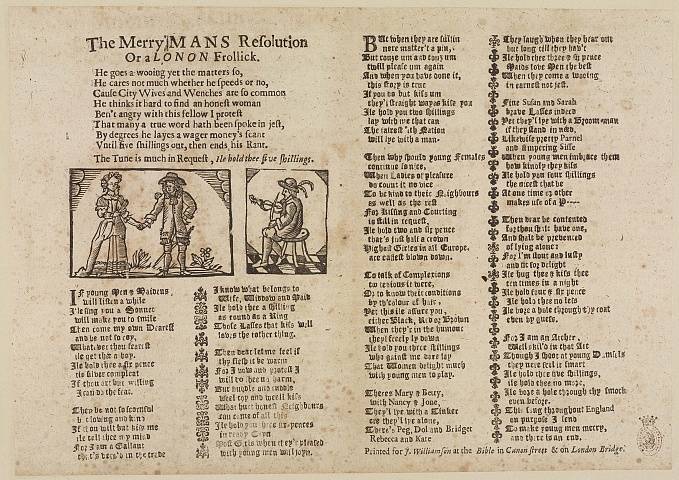 The Merry MANS Resolution
Or a LONON Frollick.
He goes a wooing yet the matters so,
He cares not much whether he speeds or no,
Cause City Wives and Wenches are so common
He thinks it hard to find an honest woman
Ben't angry with this fellow I protest
That many a true word hath been spoke in jest,
By degrees he layes a wager money's scant
Until five shillings out, then ends his Rant.
The Tune is much in Request, Ile hold thee five shillings.
IF young Men & Maidens,
will listen a while
I'le sing you a Sonnet
will make you to smile
Then come my own Dearest
and be not so coy,
What ever thou fearest
ile get thee a boy.
Ile hold thee a six pence
tis silver compleat
If thou art but willing
I can do the feat.
Then be not so scornful
but loving and kind
If it you will but kiss me
ile tell thee my mind
For I am a Gallant
that's vers'd in the trade
I know what belongs to
Wife, Widdow and Maid
Ile hold thee a shilling
as round as a Ring
Those Lasses that kiss well
loves the tother thing.
Then dear let me feel if
thy flesh it be warm
For I vow and protest I
will do thee no harm,
But huddle and cuddle
feel toy and we'll kiss
What hurt honest Neighbours
can come of all this
Ile hold you three six-pences
in ready Coyn
Most Girls when they'r pleased
with young men will joyn.
BUt when they are sullin
note matter't a pin,
But touze um and touz um
twill please um again
And when you have done it,
this story is true
If you do but kiss um
they'l straight wayes kiss you
Ile hold you two shillings
lay with me that can
The fairest 'ith Nation
will lye with a man.
Then why should young Females
continue so nice,
When Ladies of pleasure
do count it no vice
To be kind to their Neighbours
as well as the rest
For Kissing and Courting
is still in request,
Ile hold two and six pence
that's just half a crown
Highest Girles in all Europe,
are easiest blown down.
To talk of Complexions
to tedious it were,
Or to know their conditions
by th'colour of hair,
Yet this ile assure you,
either Black, Red or Brown
When they'r in the humour
they'l freely ly down
Ile hold you three shillings
who against me dare lay
That Women delight much
with young men to play.
Theres Mary & Betty,
with Nancy & Jone,
They'l lye with a Tinker
ere they'l lye alone,
There's Peg, Dol and Bridget
Rebecca and Kate
They laugh when they hear out
but long till they hav't
Ile hold thee three & six pence
Maids love Men the best
When they come a wooing
in earnest not jest.
Fine Susan and Sarah
brave Lasses indeed
Yet they'l lye with a Broom-man
if they stand in need,
Likewise pretty Parnel
and simpering Sisse
When young men embrace them
how kindly they kiss
Ile hold you four shillings
the nicest that be
At one time or other
makes use of a P----
Then dear be contented
for thou shalt have one,
And shalt be prevented
of lying alone:
For I'm stout and lusty
and fit for delight
Ile hug thee & kiss thee
ten times in a night
Ile hold four & six pence
Ile hold thee no lets
Ile bore a hole through thy coat
even by guess.
For I am an Archer,
Well skill'd in that Art
Though I shoot at young Damsels
they nere feel it smart
Ile hold thee five shillings,
ile hold thee no more,
Ile bore a hole through thy smock
even before.
This sing throughout England
on purpose I send
To make young men merry,
and there is an end.
Printed for J. Williamson at the Bible in Canon street & on London Bridge.